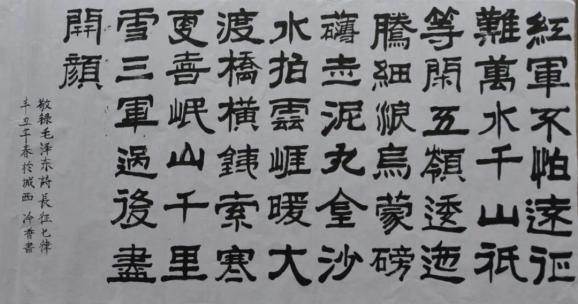 紅軍不怕遠征
難萬水千山祇
等閑五嶺逶迤
騰細浪烏蒙磅
礴走泥丸金沙
水拍雲崖暖大
渡橋橫銕索寒
更喜岷山千里
雪三軍過後盡
開顏
敬錄毛泽东詩長征七律
辛丑年春於城西 冷香書